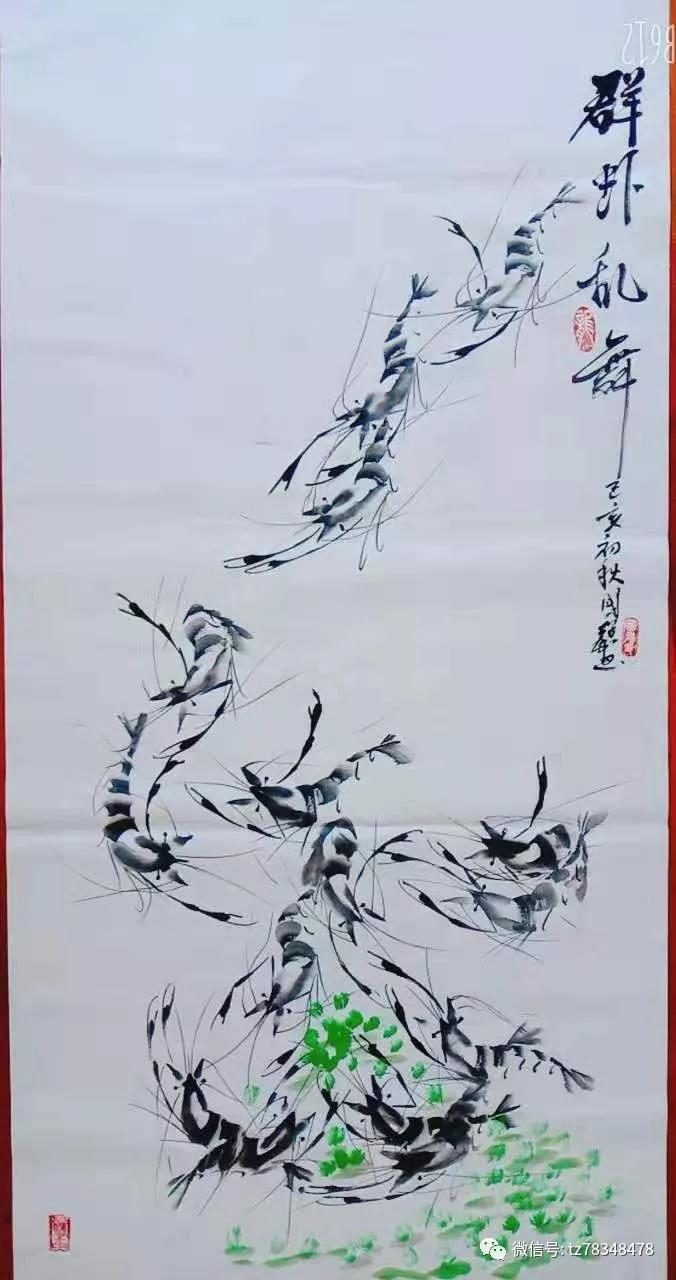 B612
群虾乱舞
己亥初秋国
微信号: tz78348478